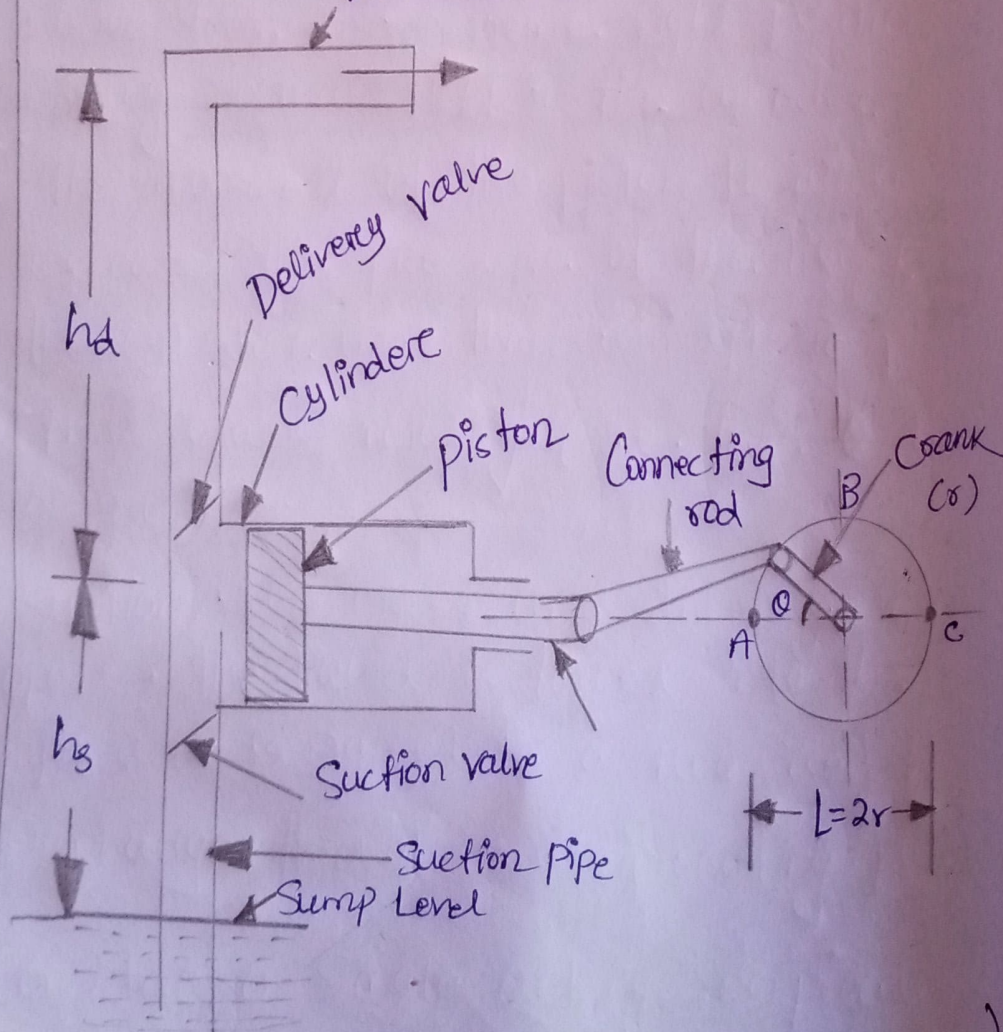 Delivery valve
hd
Cylindere
piston
Connecting
rod
Crank
(r)
B
θ
A
C
hs
Suction valve
L=2r
Suction pipe
Sump Level